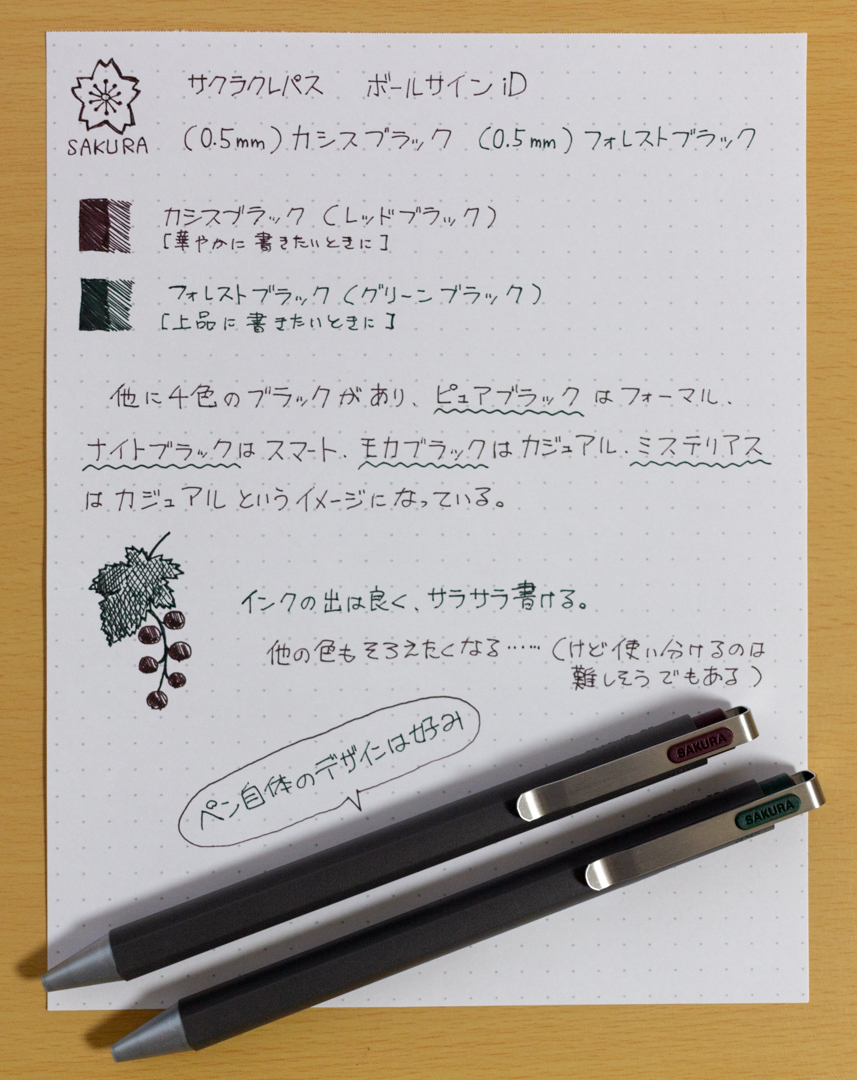 サクラクレパス ボールサイン iD
SAKURA
(0.5mm) カシスブラック (0.5mm) フォレストブラック
カシスブラック (レッドブラック)
[華やかに書きたいときに]
フォレストブラック (グリーンブラック)
[上品に書きたいときに]
他に4色のブラックがあり、ピュアブラックはフォーマル、
ナイトブラックはスマート、モカブラックはカジュアル、ミステリアス
はカジュアルというイメージになっている。
インクの出は良く、サラサラ書ける。
他の色もそろえたくなる…… (けど使い分けるのは
難しそうでもある)
ペン自体のデザインは好み
SAKURA
SAKURA